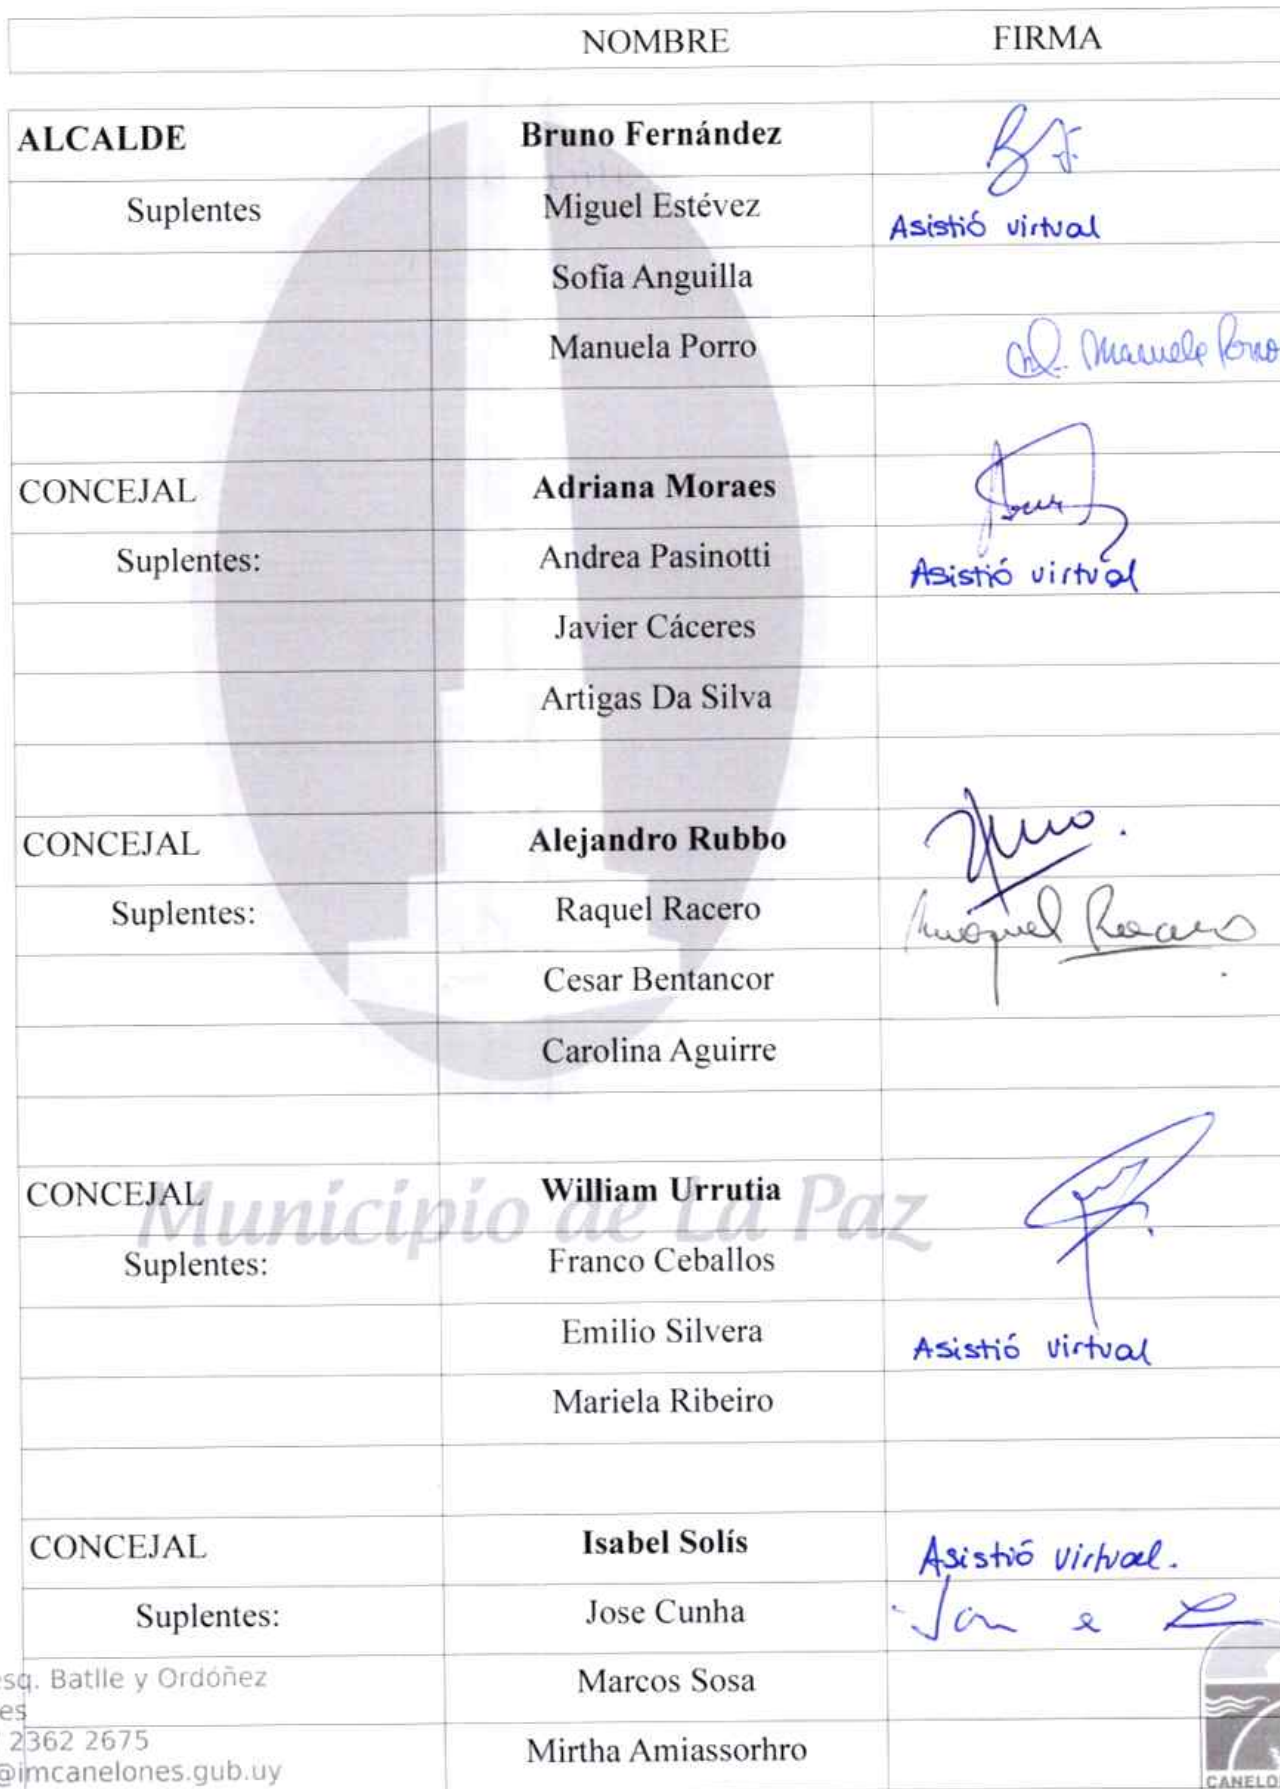 NOMBRE FIRMA
ALCALDE Bruno Fernández BF.
Suplentes Miguel Estévez Asistió virtual
Sofía Anguilla
Manuela Porro Manuela Porro
CONCEJAL Adriana Moraes
Suplentes: Andrea Pasinotti Asistió virtual
Javier Cáceres
Artigas Da Silva
CONCEJAL Alejandro Rubbo
Suplentes: Raquel Racero
Cesar Bentancor
Carolina Aguirre
CONCEJAL William Urrutia
Municipio de La Paz
Suplentes: Franco Ceballos
Emilio Silvera Asistió virtual
Mariela Ribeiro
CONCEJAL Isabel Solís Asistió virtual.
Suplentes: Jose Cunha
Marcos Sosa
esq. Batlle y Ordóñez
es
2362 2675
Mirtha Amiassorhro
@imcanelones.gub.uy
CANELO